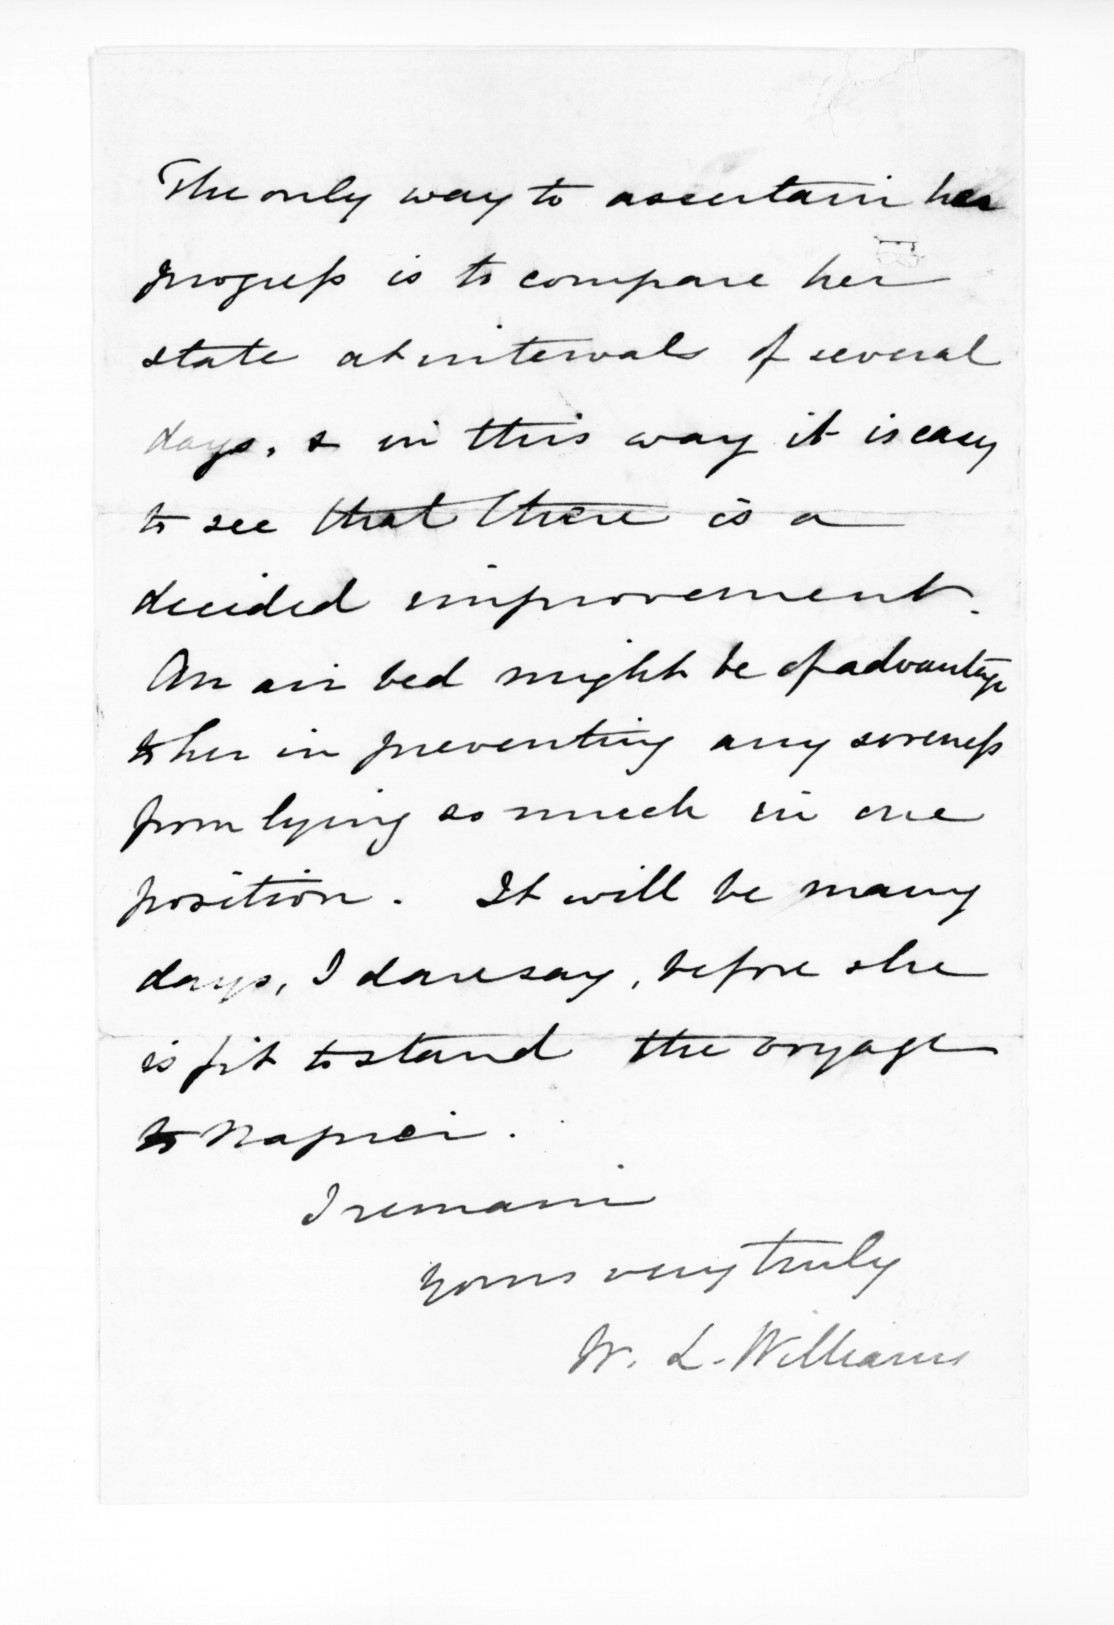 The only way to ascertain her
progress is to compare her
state at intervals of several
days, & in this way it is easy
to see that there is a
decided improvement.
An air bed might be of advantage
to her in preventing any soreness
from lying so much in one
position. It will be many
days, I daresay, before she
is fit to stand the voyage
to Napier.
I remain
Yours very truly
W. L. Williams